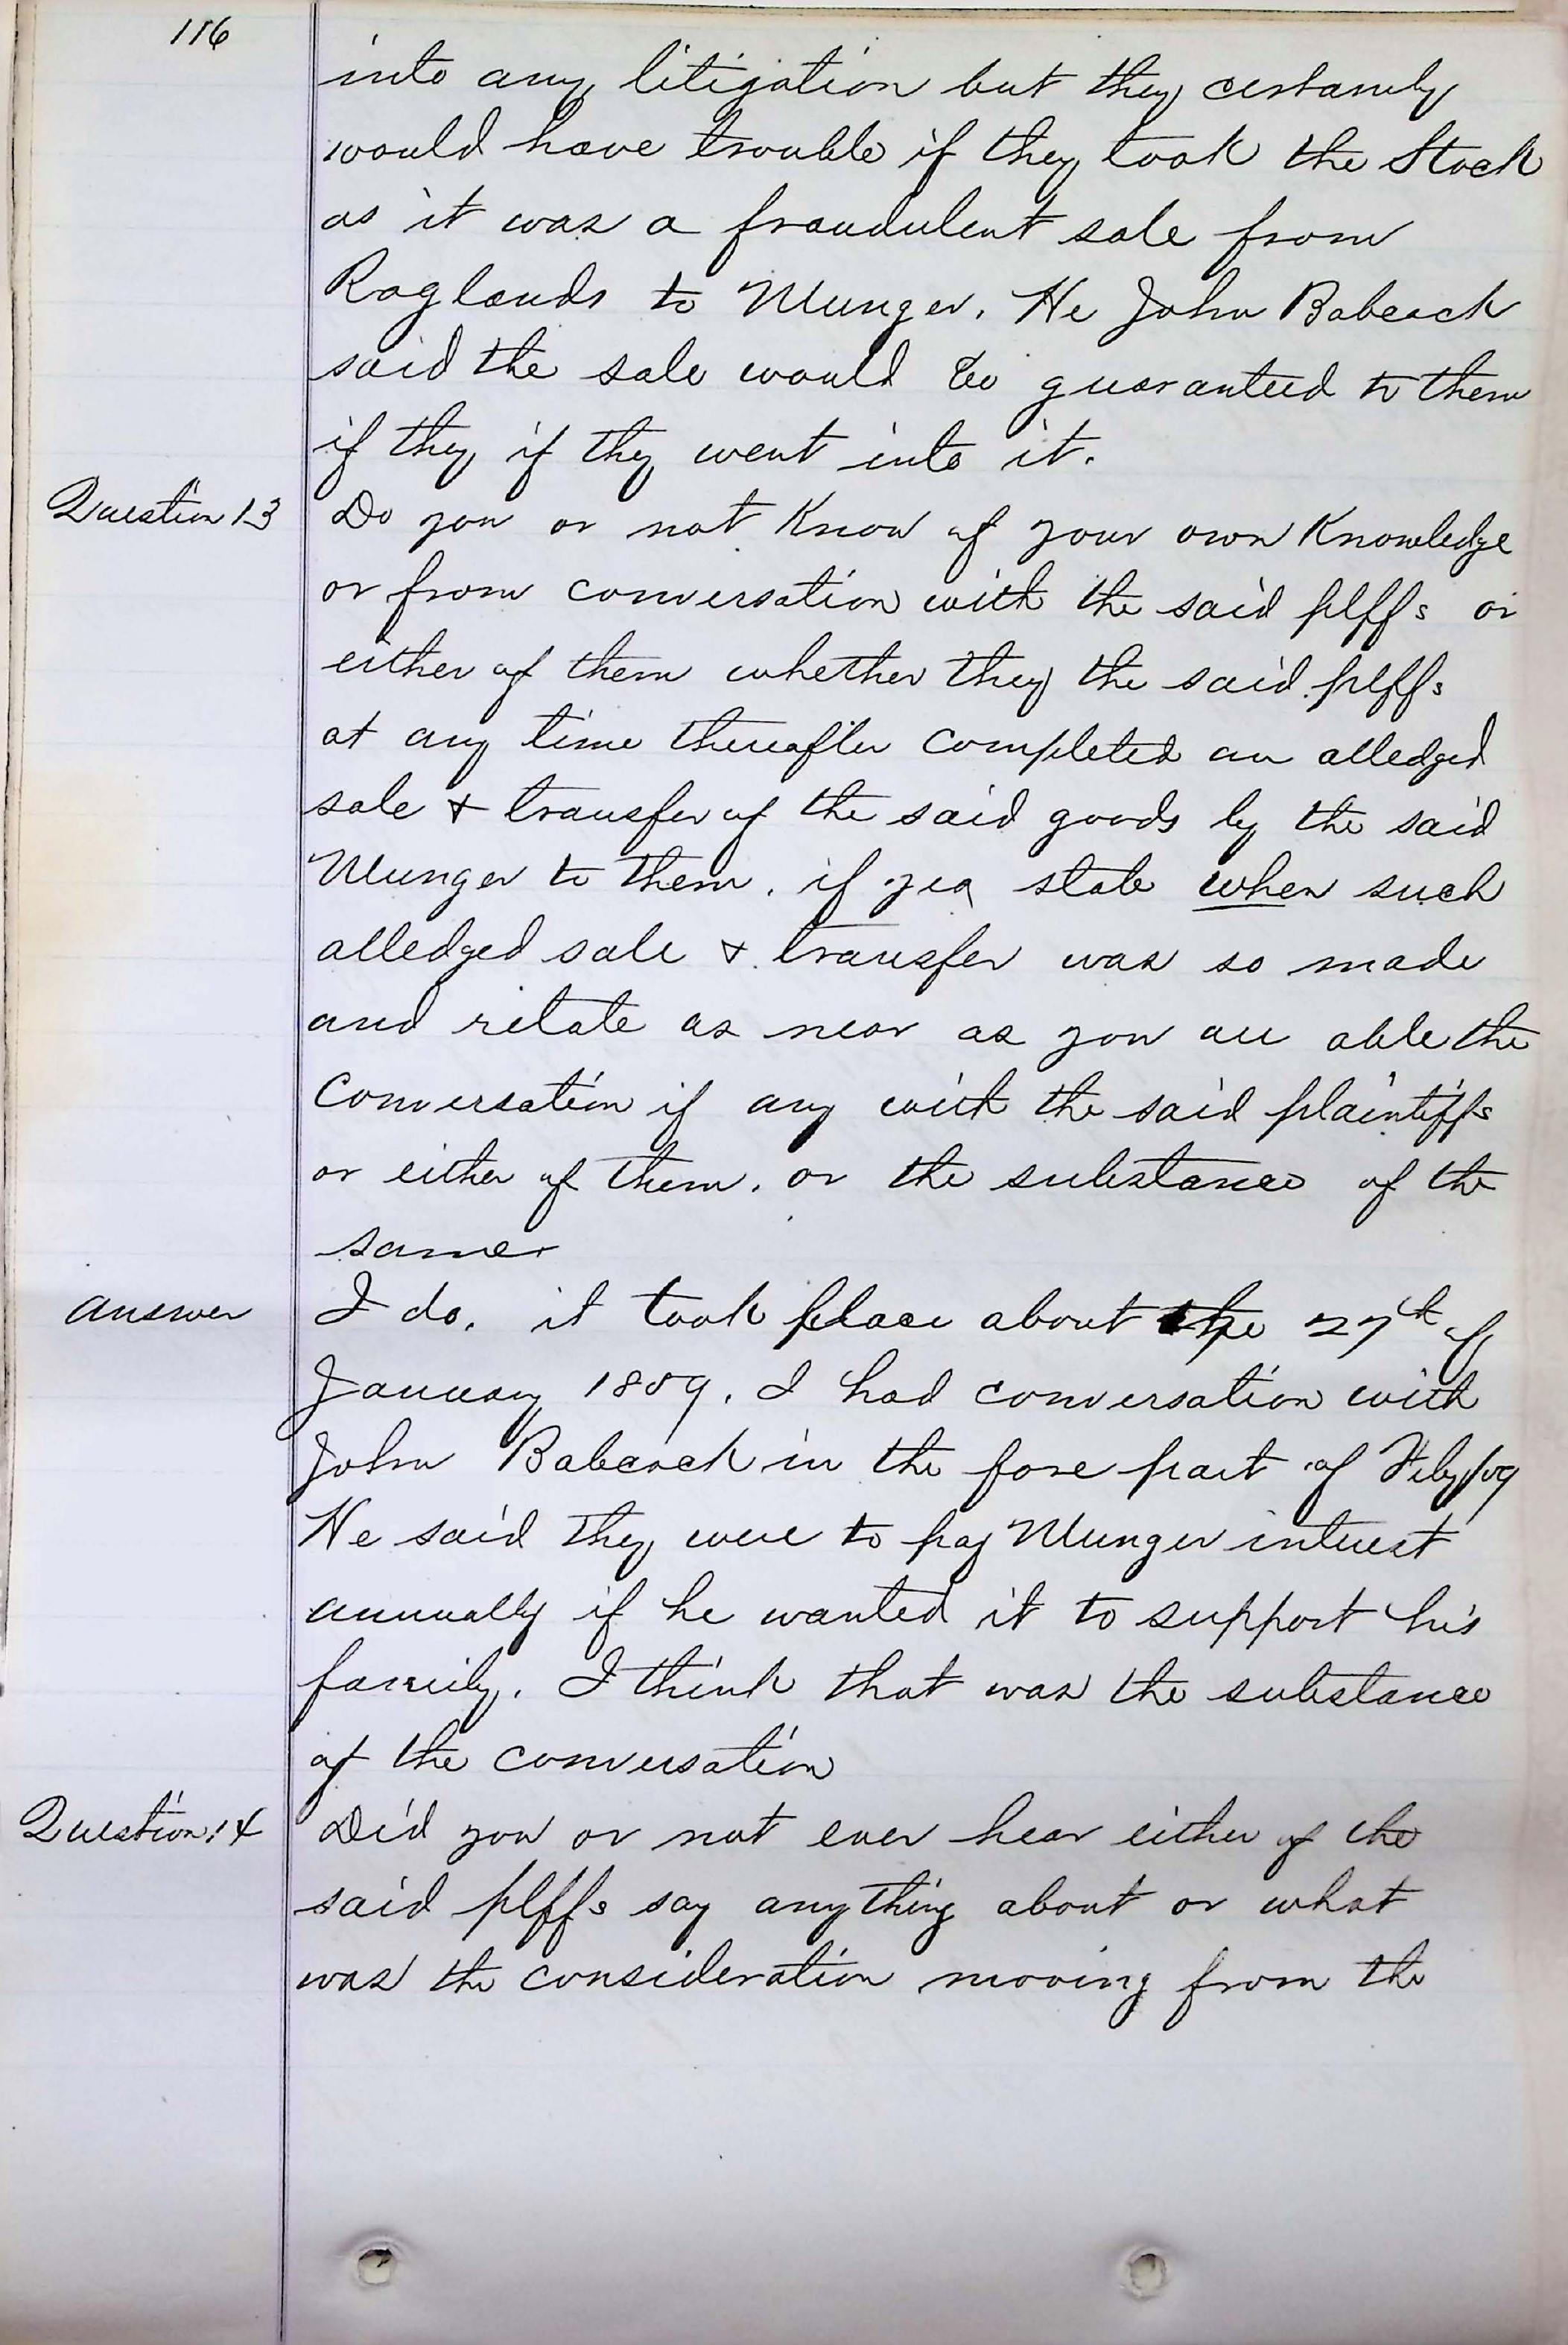 116
into any litigation but they certainly
would have trouble if they took the Stock
as it was a fraudulent sale from
Raglands to Munger. He John Babcock
said the sale would be guaranteed to them
if they if they went into it.
Question 13 Do you or not Know of your own Knowledge
or from conversation with the said plffs or
either of them whether they the said plffs
at any time thereafter completed an alledged
sale & transfer of the said goods by the said
Munger to them. if yea state when such
alledged sale & transfer was so made
and relate as near as you are able the
Conversation if any with the said plaintiffs
or either of them. or the substance of the
same
answer I do. it took place about the 27th of
January 1859. I had conversation with
John Babcock in the fore part of Feby/59
He said they were to pay Munger interest
annually if he wanted it to support his
family. I think that was the substance
of the conversation
Question 14 Did you or not ever hear either of the
said plffs say anything about or what
was the consideration moving from the